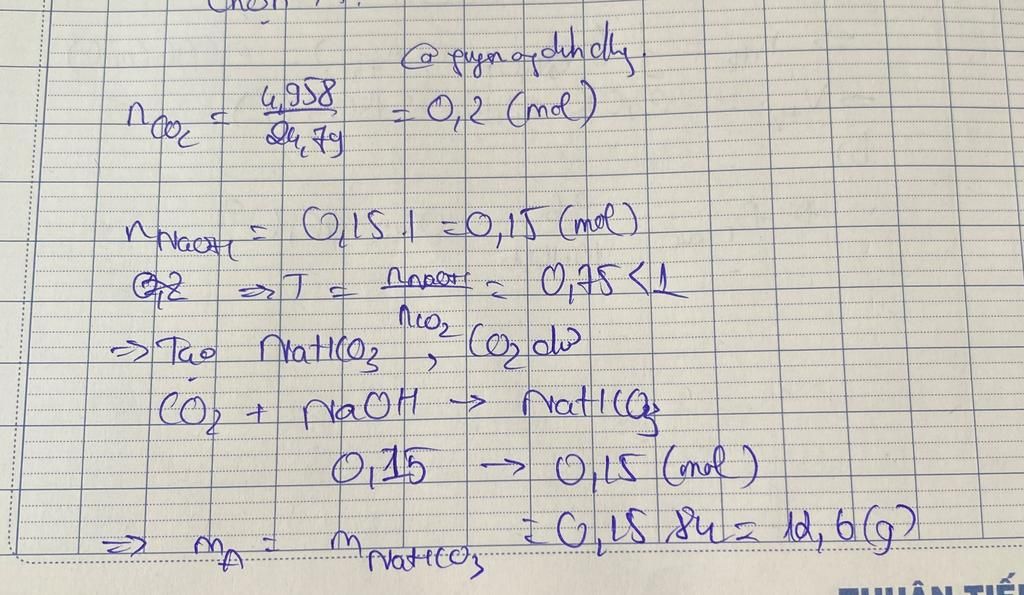 Chọn
n CO2 = 4,958 / 24,79 = 0,2 (mol)
n NaOH = 0,15 . 1 = 0,15 (mol)
⇒ T = n NaOH / n CO2 = 0,75 < 1
⇒ Tạo NaHCO3 , CO2 dư
CO2 + NaOH → NaHCO3
0,15 → 0,15 (mol)
⇒ mA = m NaHCO3 = 0,15 . 84 = 12,6 (g)
THUẬN TIẾ